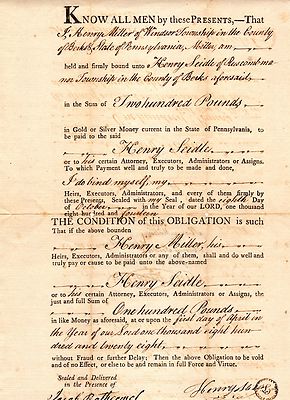 KNOW ALL MEN by these PRESENTS,—That
I, Henry Miller of Windsor Township in the County
of Berks & State of Pennsylvania, Miller, am
held and firmly bound unto Henry Seidle of Ruscombma
nor Township in the County of Berks aforesaid
in the Sum of Two hundred Pounds
in Gold or Silver Money current in the State of Pennsylvania, to
be paid to the said
Henry Seidle
or to his certain Attorney, Executors, Administrators or Assigns.
To which Payment well and truly to be made and done,
I do bind myself, my
Heirs, Executors, Administrators, and every of them firmly by
these Presents, Sealed with my Seal, dated the eighth Day
of October in the Year of our LORD, one thousand
eight hundred and fourteen
THE CONDITION of this OBLIGATION is such
That if the above bounden
Henry Miller, his
Heirs, Executors, Administrators or any of them, shall and do well and
truly pay or cause to be paid unto the above-named
Henry Seidle
or to his certain Attorney, Executors, Administrators or Assigns, the
just and full Sum of
One hundred Pounds
in like Money as aforesaid, at or upon the first day of April in
the Year of our Lord one thousand eight hun
dred and twenty eight,
without Fraud or further Delay: Then the above Obligation to be void
and of no Effect, or else to be and remain in full Force and Virtue.
Sealed and Delivered
in the Presence of
Henry
Jacob Rothermel